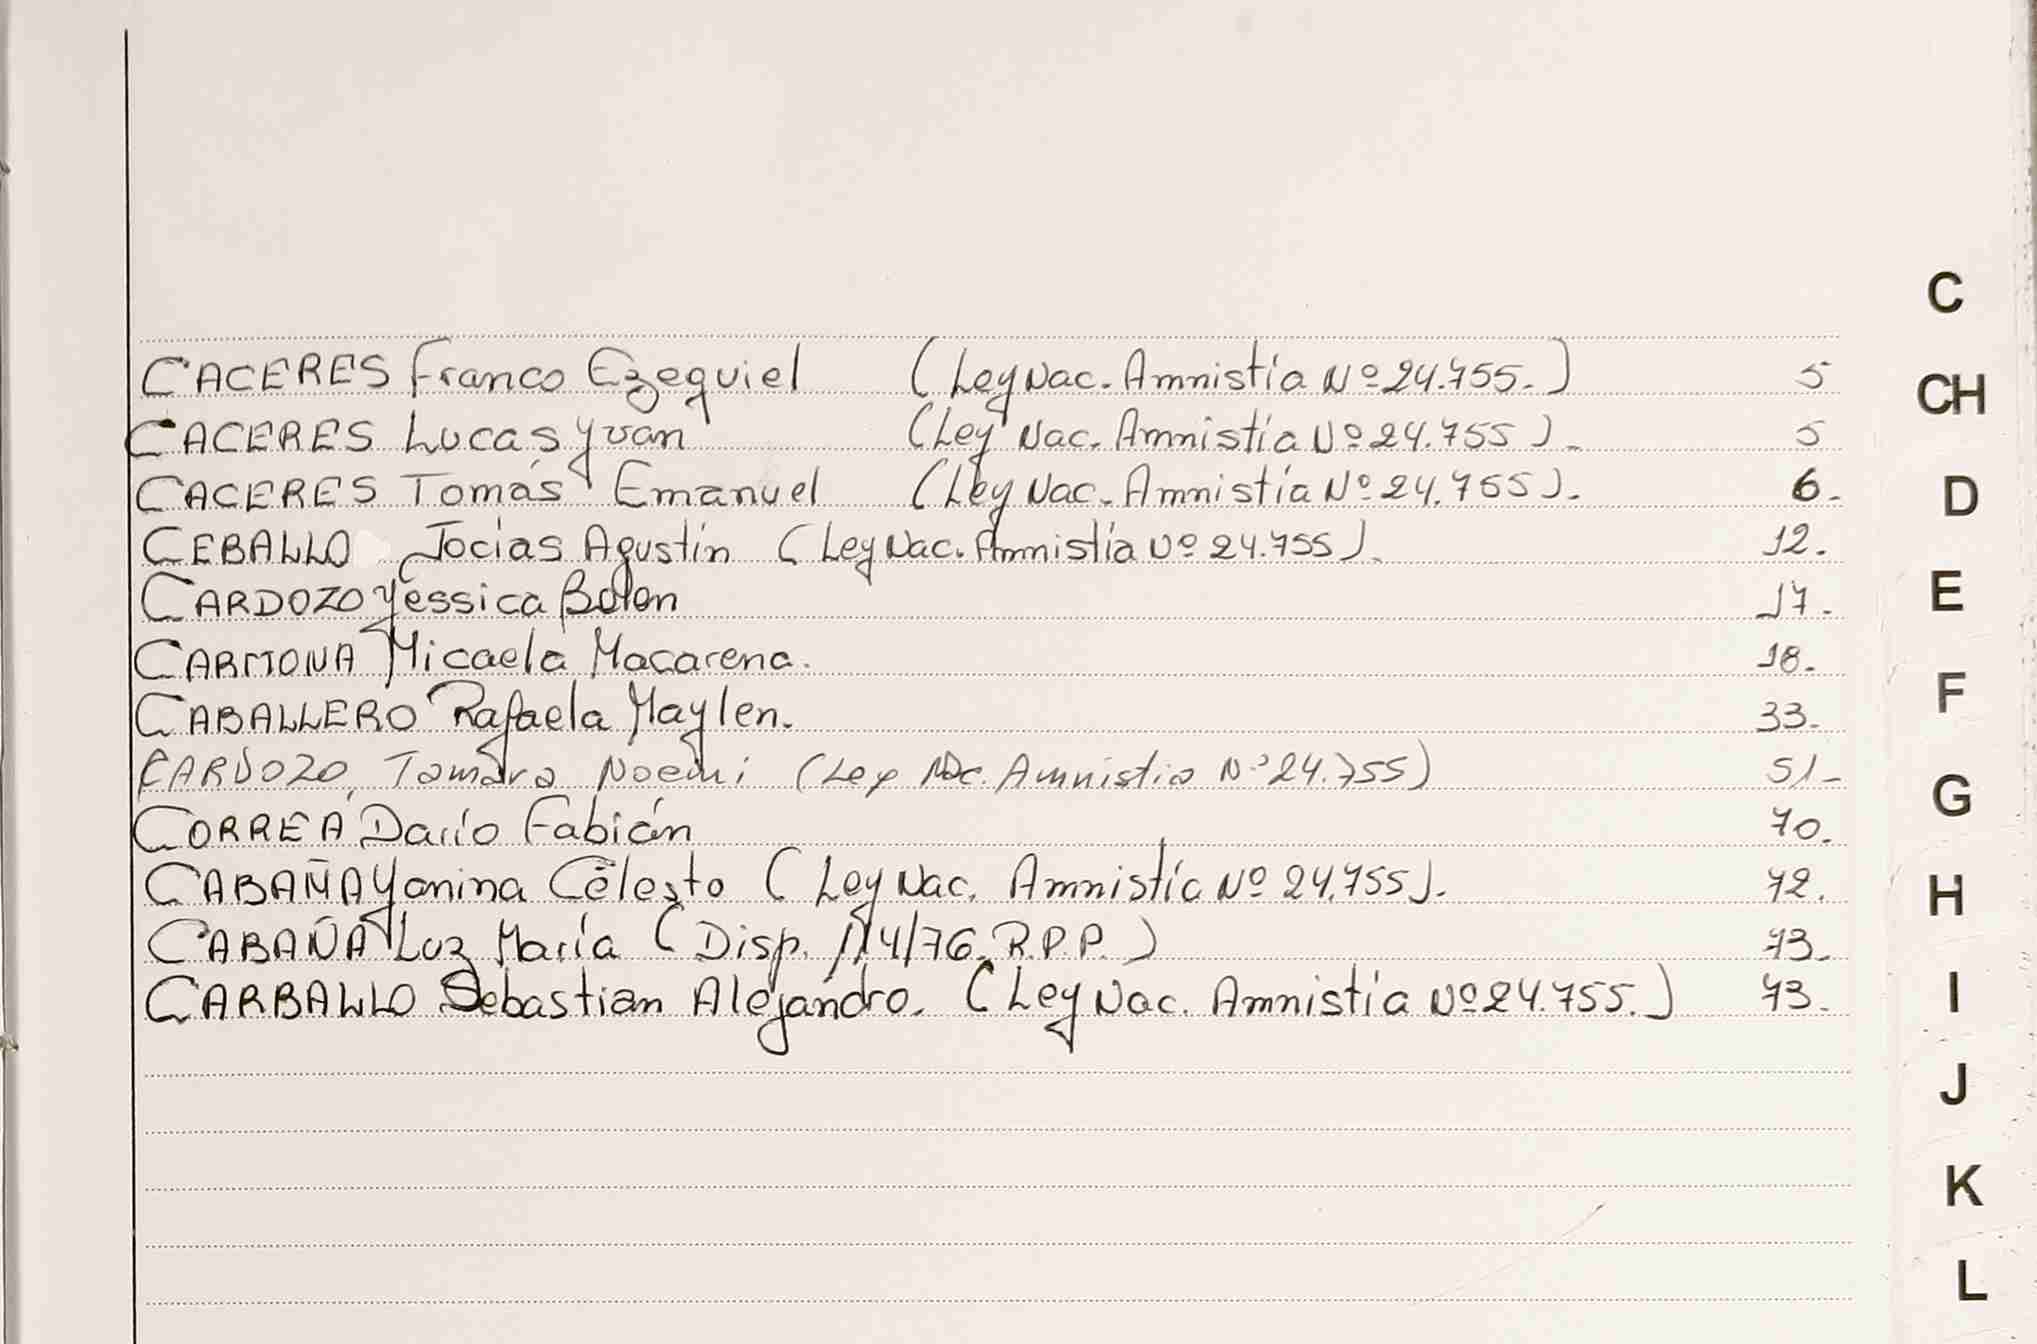 CACERES Franco Ezequiel (Ley Nac. Amnistía Nº 24.755.) 5
CACERES Lucas Yvan (Ley Nac. Amnistía Nº 24.755). 5
CACERES Tomás Emanuel (Ley Nac. Amnistía Nº 24.755). 6.
CEBALLO Jocías Agustín (Ley Nac. Amnistía Nº 24.755). 12.
CARDOZO Yéssica Belen 17.
CARMONA Micaela Macarena. 18.
CABALLERO Rafaela Maylen. 33.
CARDOZO, Tamara Noemi (Ley Nac. Amnistia Nº 24.755) 51-
CORREA Darío Fabián 70.
CABAÑA Yanina Celeste (Ley Nac. Amnistía Nº 24.755). 72.
CABAÑA Luz María (Disp. 114/76. R.P.P.) 73.
CARBALLO Sebastian Alejandro. (Ley Nac. Amnistía Nº 24.755.) 73.
C
CH
D
E
F
G
H
I
J
K
L